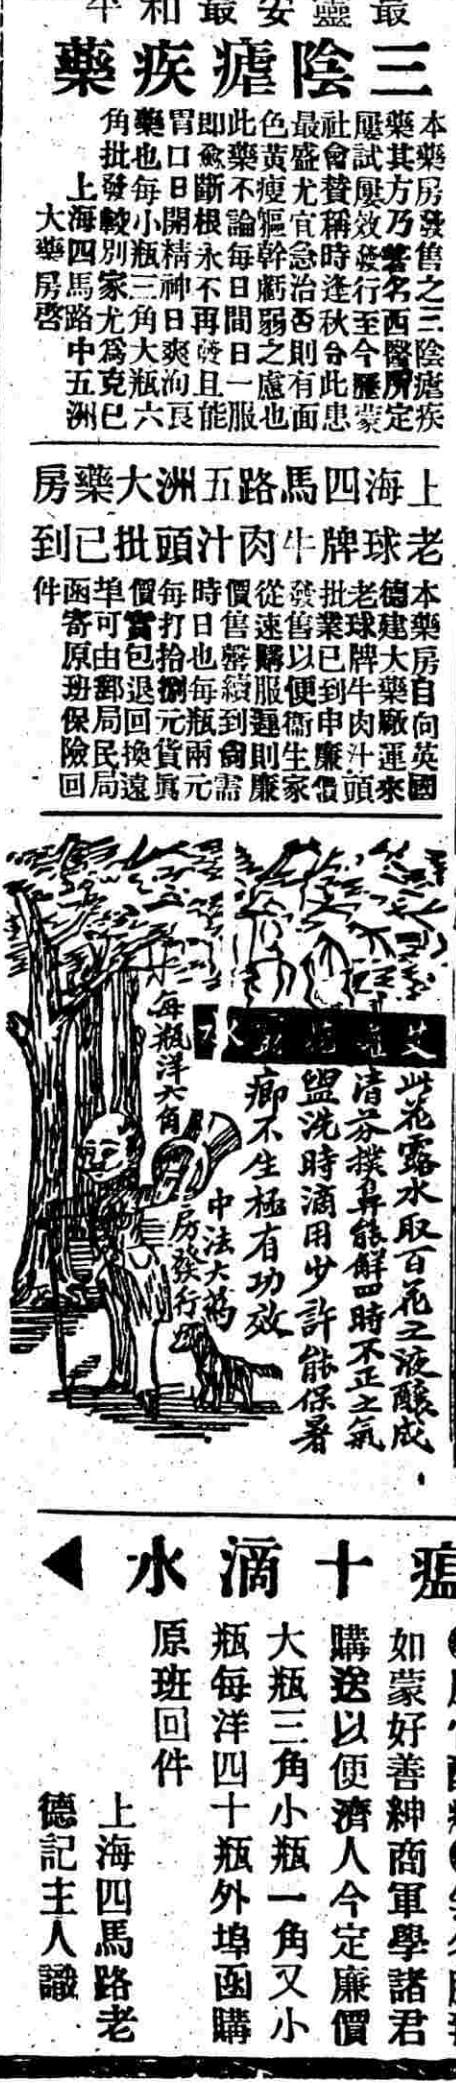 最靈安最和平
三陰瘧疾藥
本藥房發售之三陰瘧疾
藥其方乃著名西醫所定
屢試屢效發行至今歷蒙
社會贊稱時逢秋分此患
最盛尤宜急治否則有面
色黃瘦軀幹虧弱之慮也
此藥不論每日間日一服
即愈斷根永不再發且能
胃口日開精神日爽洵良
藥也每小瓶三角大瓶六
角批發較別家尤爲克已
上海四馬路中五洲
大藥房啓
上海四馬路五洲大藥房
老球牌牛肉汁頭批已到
本藥房自向英國
德建大藥廠運來
老球牌牛肉汁頭
批業已到申廉價
發售以便衞生家
從速購服遲則廉
價售罄續到尙需
時日也每瓶兩元
每打拾捌元貨眞
價實包退回換遠
埠可由郵局民局
函寄原班保險回
件
此花露水取百花之液釀成
清芬撲鼻能解四時不正之氣
盥洗時滴用少許能保暑
癤不生極有功效
每瓶洋六角
中法大藥
房發行
瘟十滴水
如蒙好善紳商軍學諸君
購送以便濟人今定廉價
大瓶三角小瓶一角又小
瓶每洋四十瓶外埠函購
原班回件
上海四馬路老
德記主人識